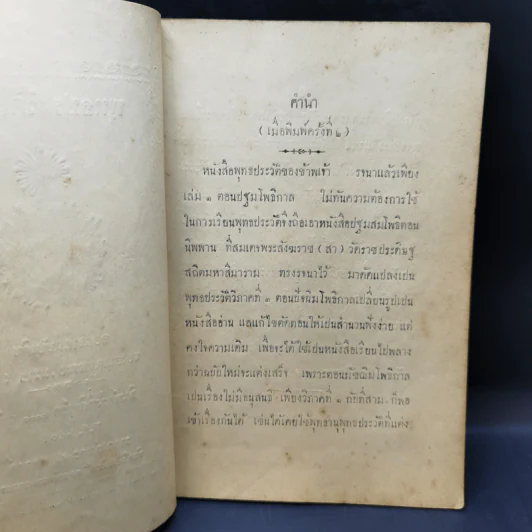 คำนำ
( เมื่อพิมพ์ครั้งที่ ๒ )
หนังสือพุทธประวัติของข้าพเจ้า รจนาแล้วเพียง
เล่ม ๑ ตอนปฐมโพธิกาล ไม่ทันความต้องการใช้
ในการเรียนพุทธประวัติจึงถือเอาหนังสือปฐมสมโพธิตอน
นิพพาน ที่สมเดจพระสังฆราช ( สา ) วัดราชประดิษฐ
สถิตมหาสีมาราม ทรงรจนาไว้ มาดัดแปลงเปน
พุทธประวัติวิภาคที่ ๓ ตอนปัจฉิมโพธิกาลเปลี่ยนรูปเปน
หนังสืออ่าน แลแก้ไขดัดตอนให้เปนสำนวนฟังง่าย แต่
คงใจความเดิม เพื่อจะได้ใช้เปนหนังสือเรียนไปพลาง
กว่าฉบับใหม่จะแต่งเสร็จ เพราะตอนมัชฌิมโพธิกาล
เปนเรื่องไม่มีอนุสนธิ เพียงวิภาคที่ ๑ กับที่สาม ก็พอ
เข้าเรื่องกันได้ เช่นได้เคยใช้พุทธานุพุทธประวัติที่แต่ง